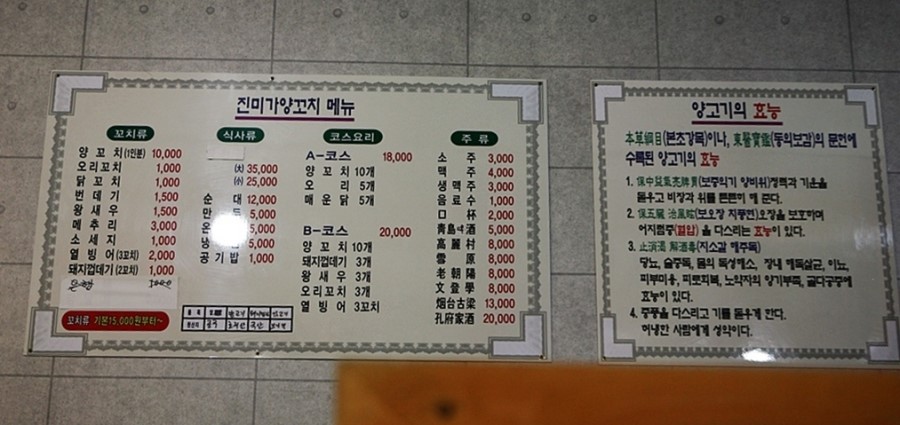 진미가양꼬치 메뉴
꼬치류
양 꼬 치(1인분) 10,000
오리꼬치 1,000
닭꼬치 1,000
번 데 기 1,500
왕 새 우 1,500
메 추 리 3,000
소 세 지 1,000
열 빙 어(3꼬치) 2,000
돼지껍데기(2꼬치) 1,000
꼬치류 기본15,000원부터~
식사류
㈛ 35,000
㈜ 25,000
순 대 12,000
5,000
5,000
공 기 밥 1,000
코스요리
A-코스 18,000
양 꼬 치 10개
오 리 5개
매 운 닭 5개
B-코스 20,000
양 꼬 치 10개
돼지껍데기 3개
왕 새 우 3개
오리꼬치 3개
열 빙 어 3꼬치
주 류
소 주 3,000
맥 주 4,000
생 맥 주 3,000
음 료 수 1,000
口 杯 2,000
青島啤酒 5,000
高 麗 村 8,000
雪 原 8,000
老 朝 陽 8,000
文 登 學 8,000
烟台古梁 13,000
孔府家酒 20,000
양고기의 효능
本草綱目(본초강목)이나, 東醫寶鑑(동의보감)의 문헌에
수록된 양고기의 효능
1. 保中益氣亮脾胃(보중익기 양비위)정력과 기운을
돋우고 비장과 위를 튼튼히 해 준다.
2. 保五臟 治風眩(보오장 치풍현)오장을 보호하며
어지럼증(혈압) 을 다스리는 효능이 있다.
3. 止消渴 解酒毒(지소갈 해주독)
당뇨, 술중독, 몸의 독성해소, 장내 해독살균, 이뇨,
피부미용, 피로회복, 노약자의 양기부족, 골다공증에
효능이 있다.
4. 중풍을 다스리고 기를 돋우게 한다.
허냉한 사람에게 성약이다.